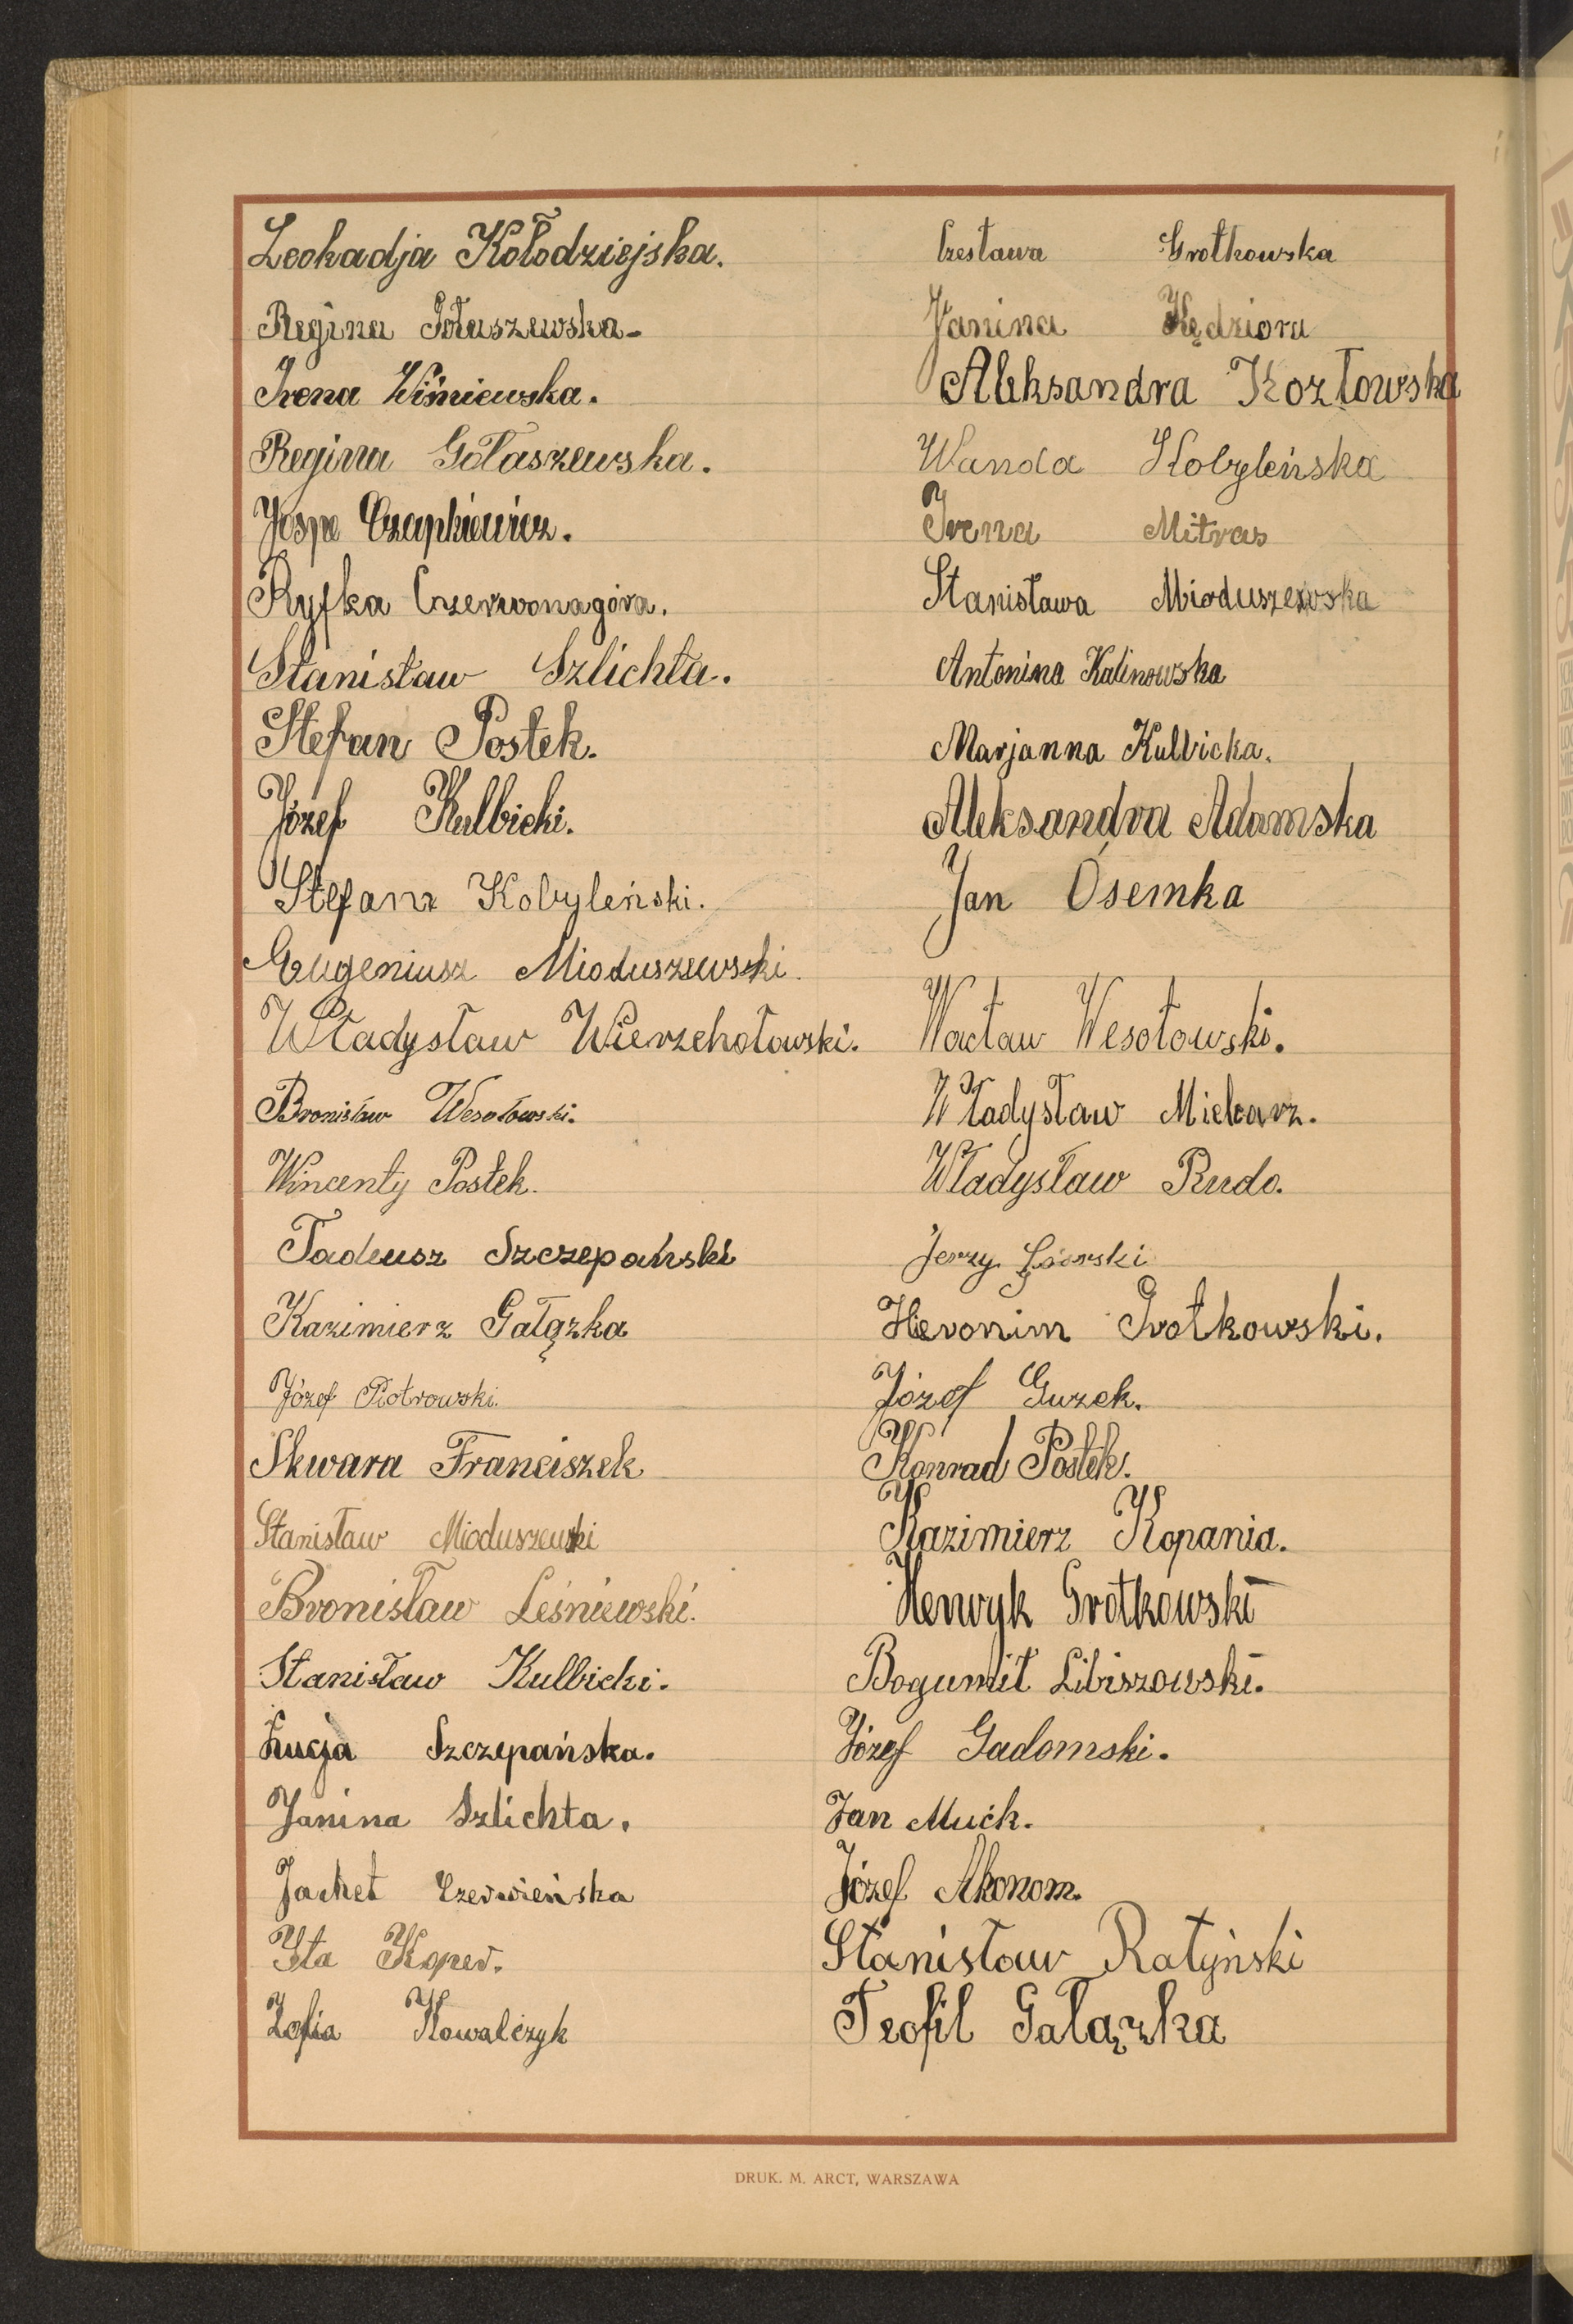 Leokadja Kołodziejska.
Regina Gołaszewska-
Irena Wiśniewska.
Regina Gołaszewska.
Jospe Czapkiewicz.
Ryfka Czerwonagóra.
Stanisław Szlichta.
Stefan Postek.
Józef Kulbicki.
Stefan Kobyleński.
Eugeniusz Mioduszewski.
Władysław Wierzchołowski.
Bronisław Wesołowski.
Wincenty Postek.
Tadeusz Szczepański
Kazimierz Gałązka
Józef Piotrowski.
Skwara Franciszek
Stanisław Mioduszewski
Bronisław Leśniewski.
Stanisław Kulbicki.
Łucja Szczepańska.
Janina Szlichta.
Jachet Czerwieńska
Yta Koper.
Zofia Kowalczyk
Czesława Grotkowska
Janina Kędziora
Aleksandra Kozłowska
Wanda Kobyleńska
Irena Mitras
Stanisława Mioduszewska
Antonina Kalinowska
Marjanna Kulbicka.
Aleksandra Adamska
Jan Ósemka
Wacław Wesołowski.
Władysław Miekarz.
Władysław Rudo.
Jerzy
Hieronim Grotkowski.
Józef Guzek.
Konrad Postek.
Kazimierz Kopania.
Henryk Grotkowski
Bogumił Libiszowski.
Józef Gadomski.
Jan Mućk.
Józef Akonom.
Stanisław Ratyński
Teofil Gałązka
DRUK. M. ARCT, WARSZAWA